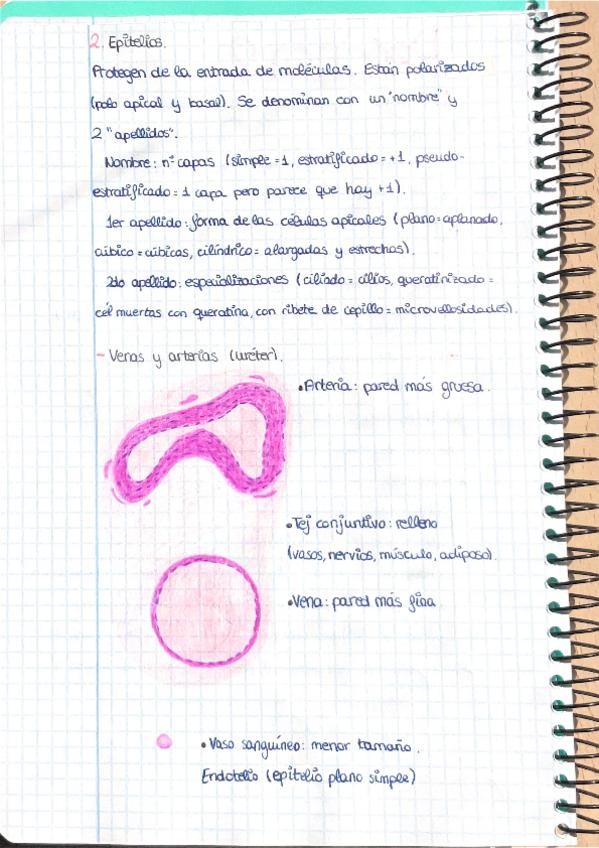 2. Epitelios.
Protegen de la entrada de moléculas. Están polarizados
(polo apical y basal). Se denominan con un "nombre" y
2 "apellidos".
Nombre: nº capas (simple = 1, estratificado = +1, pseudo-
estratificado = 1 capa pero parece que hay +1).
1er apellido: forma de las células apicales (plano = aplanado,
cúbico = cúbicas, cilíndrico = alargadas y estrechas).
2do apellido: especializaciones (ciliado = cilios, queratinizado =
cél muertas con queratina, con ribete de cepillo = microvellosidades).
- Venas y arterias (uréter).
• Arteria: pared más gruesa.
• Tej conjuntivo: relleno
(vasos, nervios, músculo, adiposo).
• Vena: pared más fina
• Vaso sanguíneo: menor tamaño.
Endotelio (epitelio plano simple)